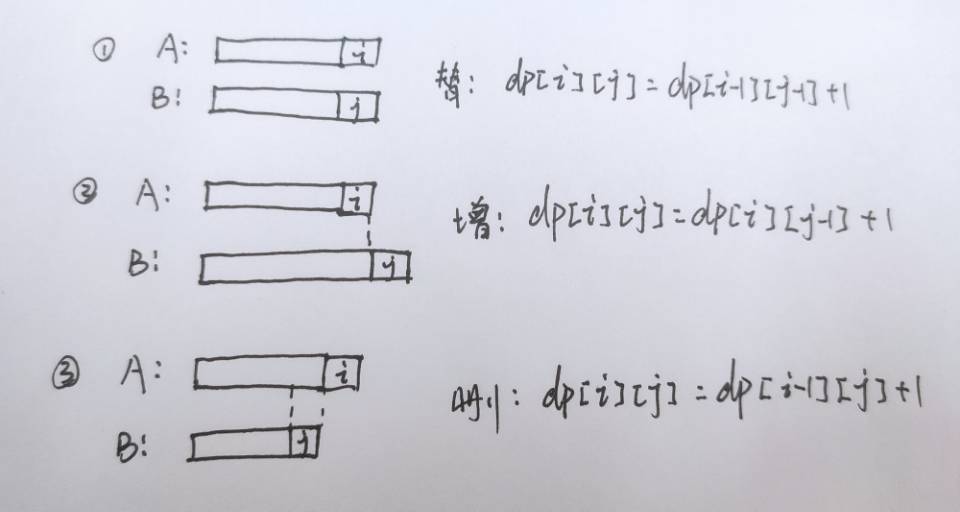 ① A: i
替: dp[i][j]=dp[i-1][j-1]+1
B: j
② A: i
增: dp[i][j]=dp[i][j-1]+1
B: j
③ A: i
删: dp[i][j]=dp[i-1][j]+1
B: j